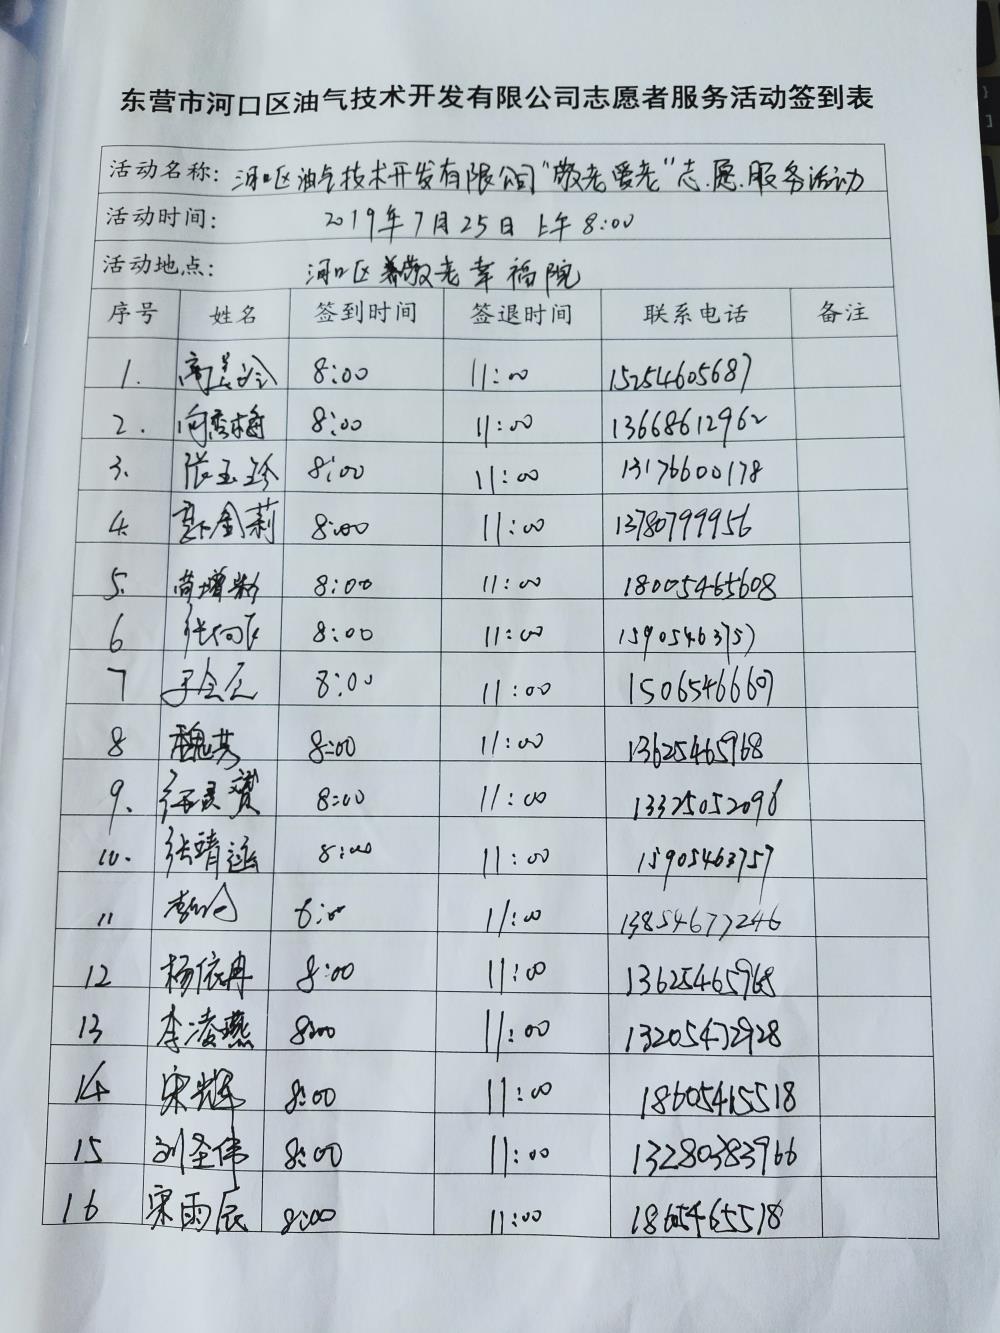 东营市河口区油气技术开发有限公司志愿者服务活动签到表
活动名称: 河口区油气技术开发有限公司"敬老爱老"志愿服务活动
活动时间: 2019年7月25日上午8:00
活动地点: 河口区敬老幸福院
序号 姓名 签到时间 签退时间 联系电话 备注
1. 8:00 11:00 15254605687
2. 8:00 11:00 13668612962
3. 张玉珍 8:00 11:00 13176600178
4. 金莉 8:00 11:00 13780799956
5. 8:00 11:00 18005465608
6 8:00 11:00 15905463757
7 8:00 11:00 15065466607
8 魏芳 8:00 11:00 13625465968
9. 8:00 11:00 13325052096
10. 张靖涵 8:00 11:00 15905463757
11 11:00 13854677246
12 杨依冉 8:00 11:00 13625465968
13 李凌燕 8:00 11:00 13205472928
14 宋辉 8:00 11:00 18605465518
15 刘圣伟 8:00 11:00 13280383966
16 宋雨辰 8:00 11:00 18605465518